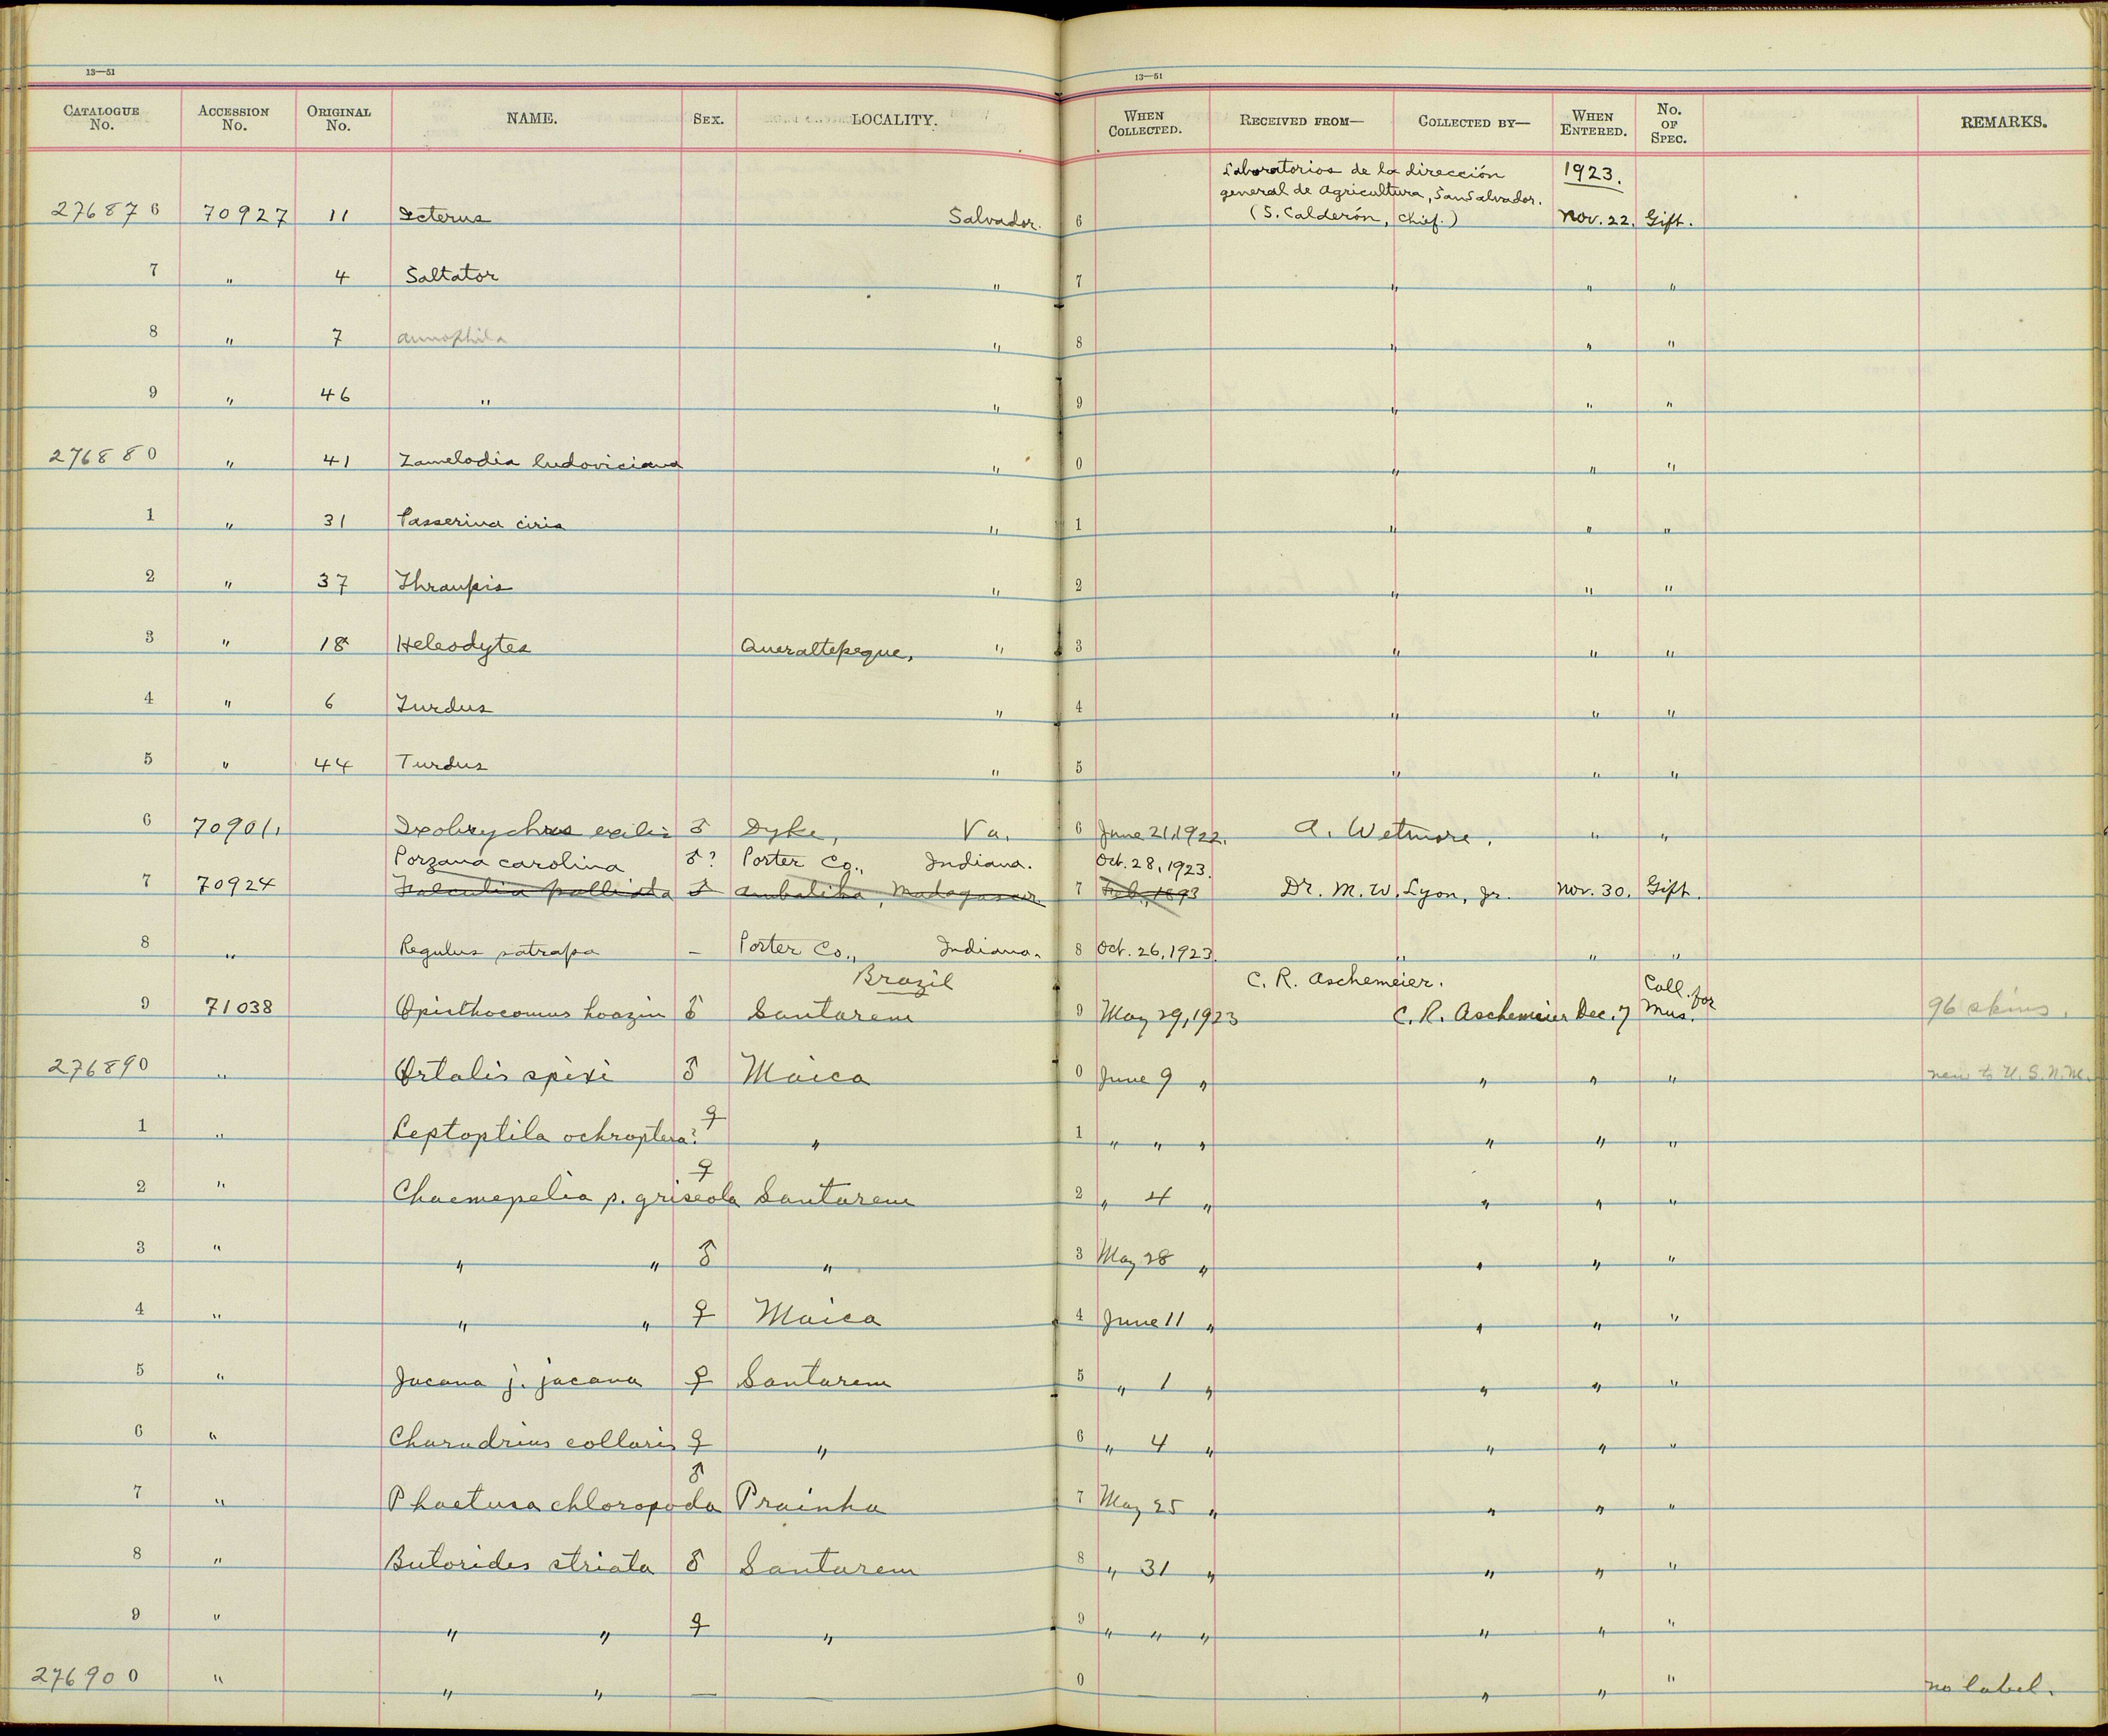 13—51
CATALOGUE No. ACCESSION No. ORIGINAL No. NAME. SEX. LOCALITY.
276876 70927 11 Icterus Salvador.
7 " 4 Saltator "
8 " 7 "
9 " 46 " "
276880 " 41 Zamelodia ludoviciana "
1 " 31 Passerina ciris "
2 " 37 Thraupis "
3 " 18 Heleodytes Queraltepeque, "
4 " 6 Turdus "
5 " 44 Turdus "
6 70901, Ixobrychus exilis ♂ Dyke, Va.
Porzana carolina ♂? Porter Co., Indiana.
7 70924 Falculia palliata ♂ Ambalika, Madagascar.
8 " Regulus satrapa – Porter Co., Indiana.
Brazil
9 71038 Opisthocomus hoazin ♂ Santarem
276890 " Ortalis spixi ♂ Maica
1 " Leptoptila ochroptera? ♀ "
2 " Chaemepelia p. griseola ♀ Santarem
3 " " " ♂ "
4 " " " ♀ Maica
5 " Jacana j. jacana ♀ Santarem
6 " Charadrius collaris ♀ "
7 " Phaetusa chloropoda ♂ Prainha
8 " Butorides striata ♂ Santarem
9 " " " ♀ "
276900 " " " — —
13—51
WHEN COLLECTED. RECEIVED FROM— COLLECTED BY— WHEN ENTERED. No. OF SPEC. REMARKS.
Laboratorios de la dirección 1923.
general de Agricultura, San Salvador.
6 (S. Calderón, Chief.) Nov. 22. Gift.
7 " " "
8 " " "
9 " " "
0 " " "
1 " " "
2 " " "
3 " " "
4 " " "
5 " " "
6 June 21, 1922. A. Wetmore. " "
Oct. 28, 1923.
7 Feb., 1893 Dr. M. W. Lyon, Jr. Nov. 30. Gift.
8 Oct. 26, 1923. " " "
C. R. Aschemeier. Coll. for
9 May 29, 1923 C. R. Aschemeier Dec. 7 Mus. 96 skins.
0 June 9 " " " " new to U.S.N.M.
1 " " " " " "
2 " 4 " " " "
3 May 28 " " " "
4 June 11 " " " "
5 " 1 " " " "
6 " 4 " " " "
7 May 25 " " " "
8 " 31 " " " "
9 " " " " " "
0 — " " " no label.